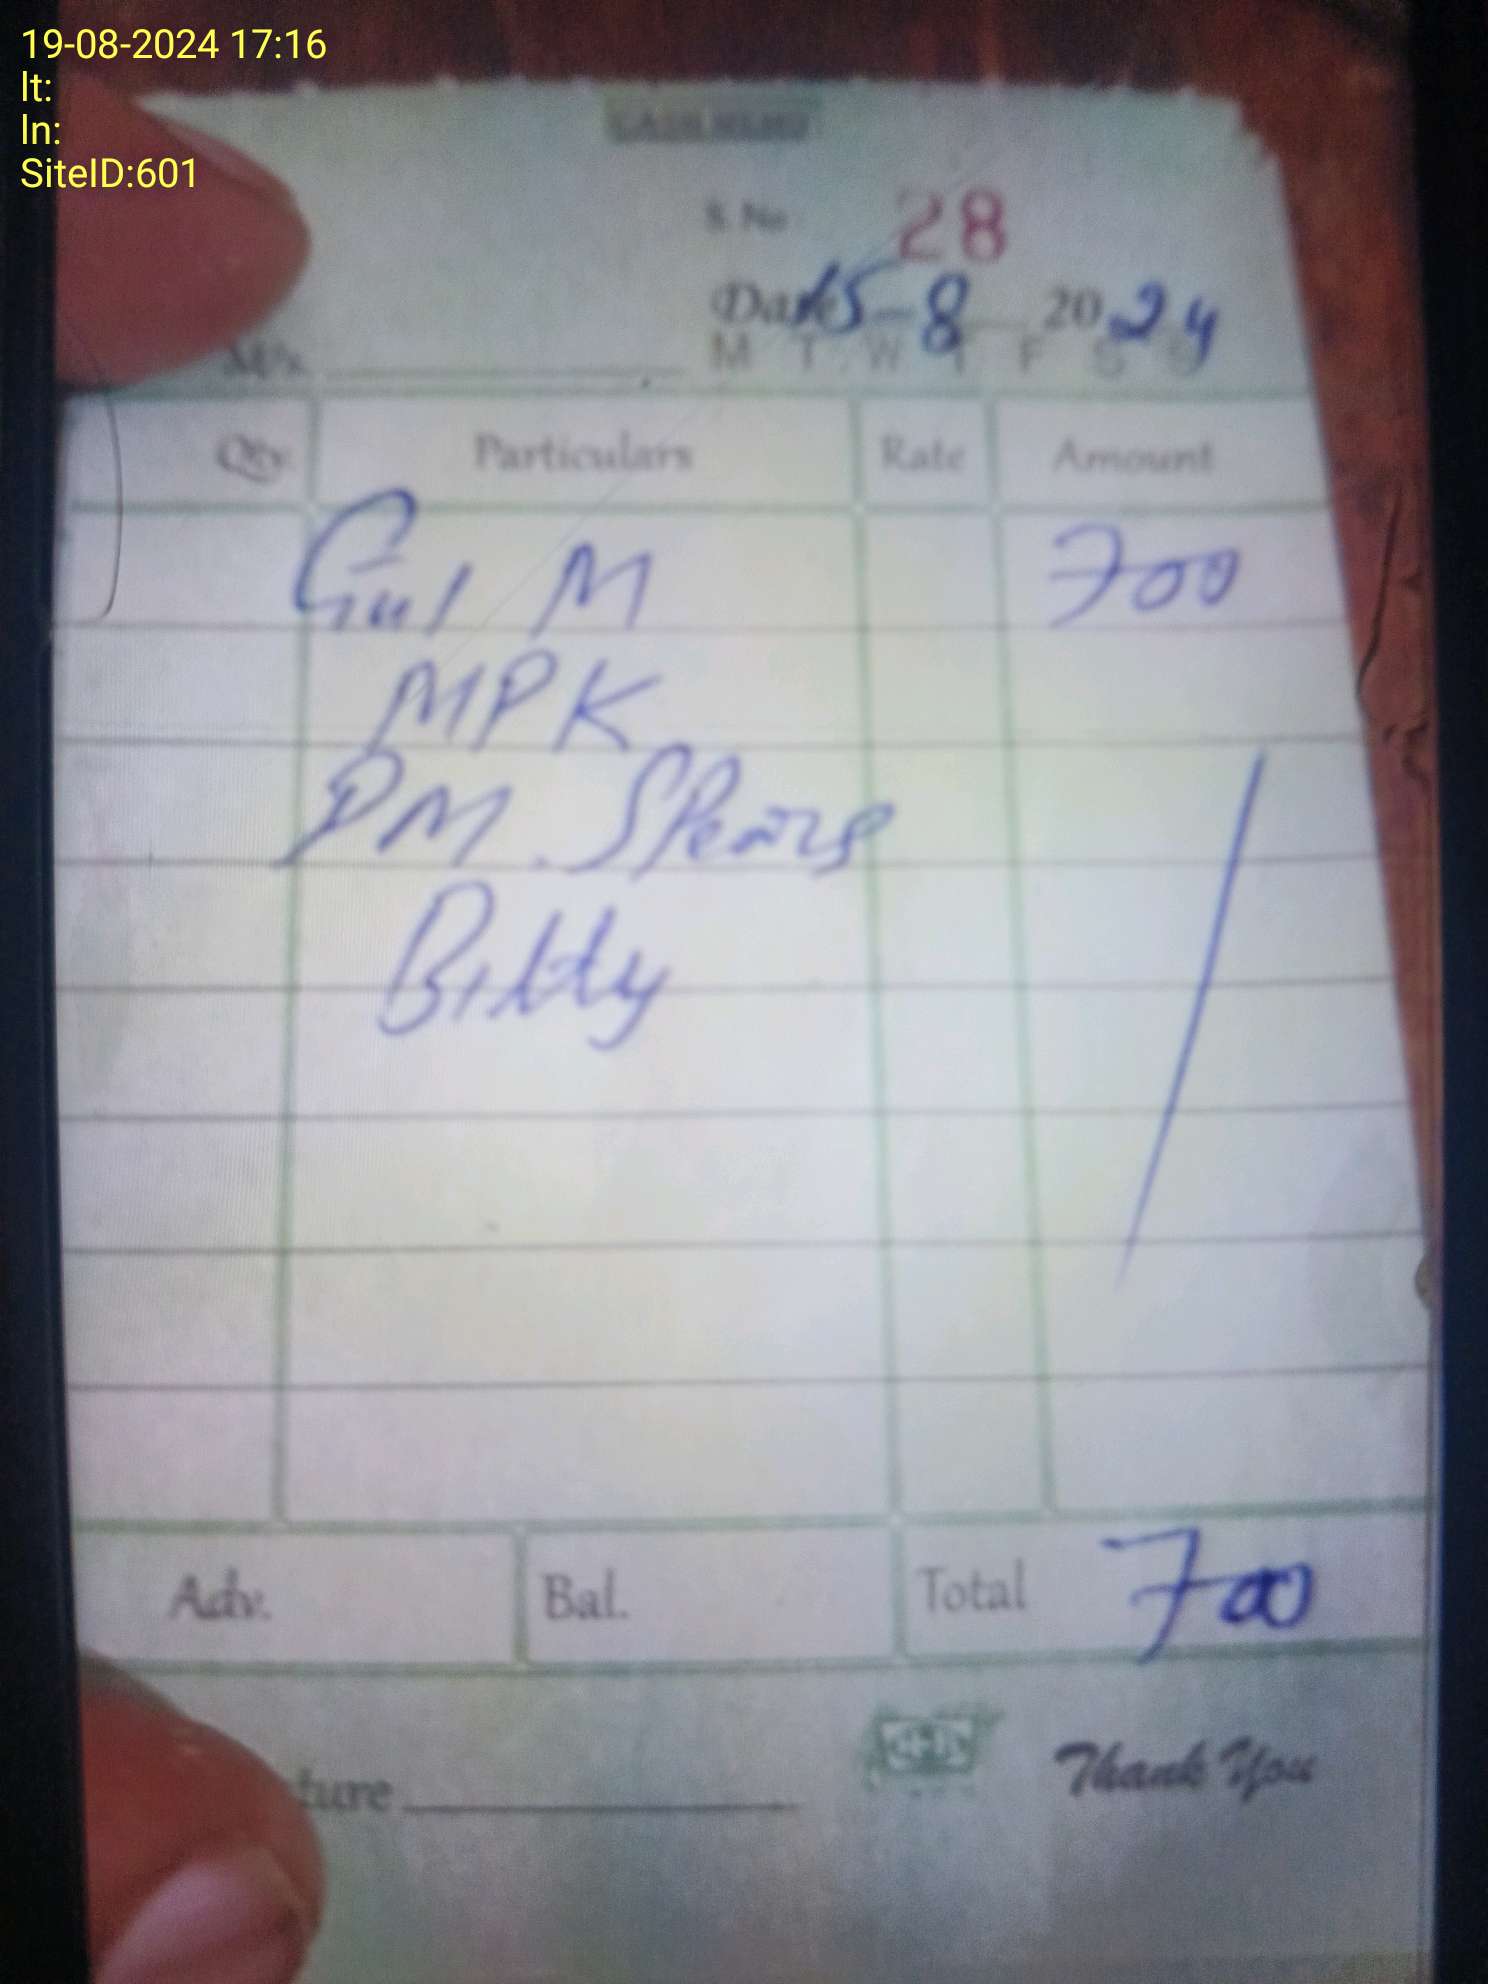 19-08-2024 17:16
lt:
ln:
SiteID:601
CASH MEMO
S. No 28
Date 15-8 2024
M T W T F S S
M/s.
Qty. Particulars Rate Amount
Gul M 700
MPK
DM. Spears
Billty
Adv. Bal. Total 700
ture
Thank You